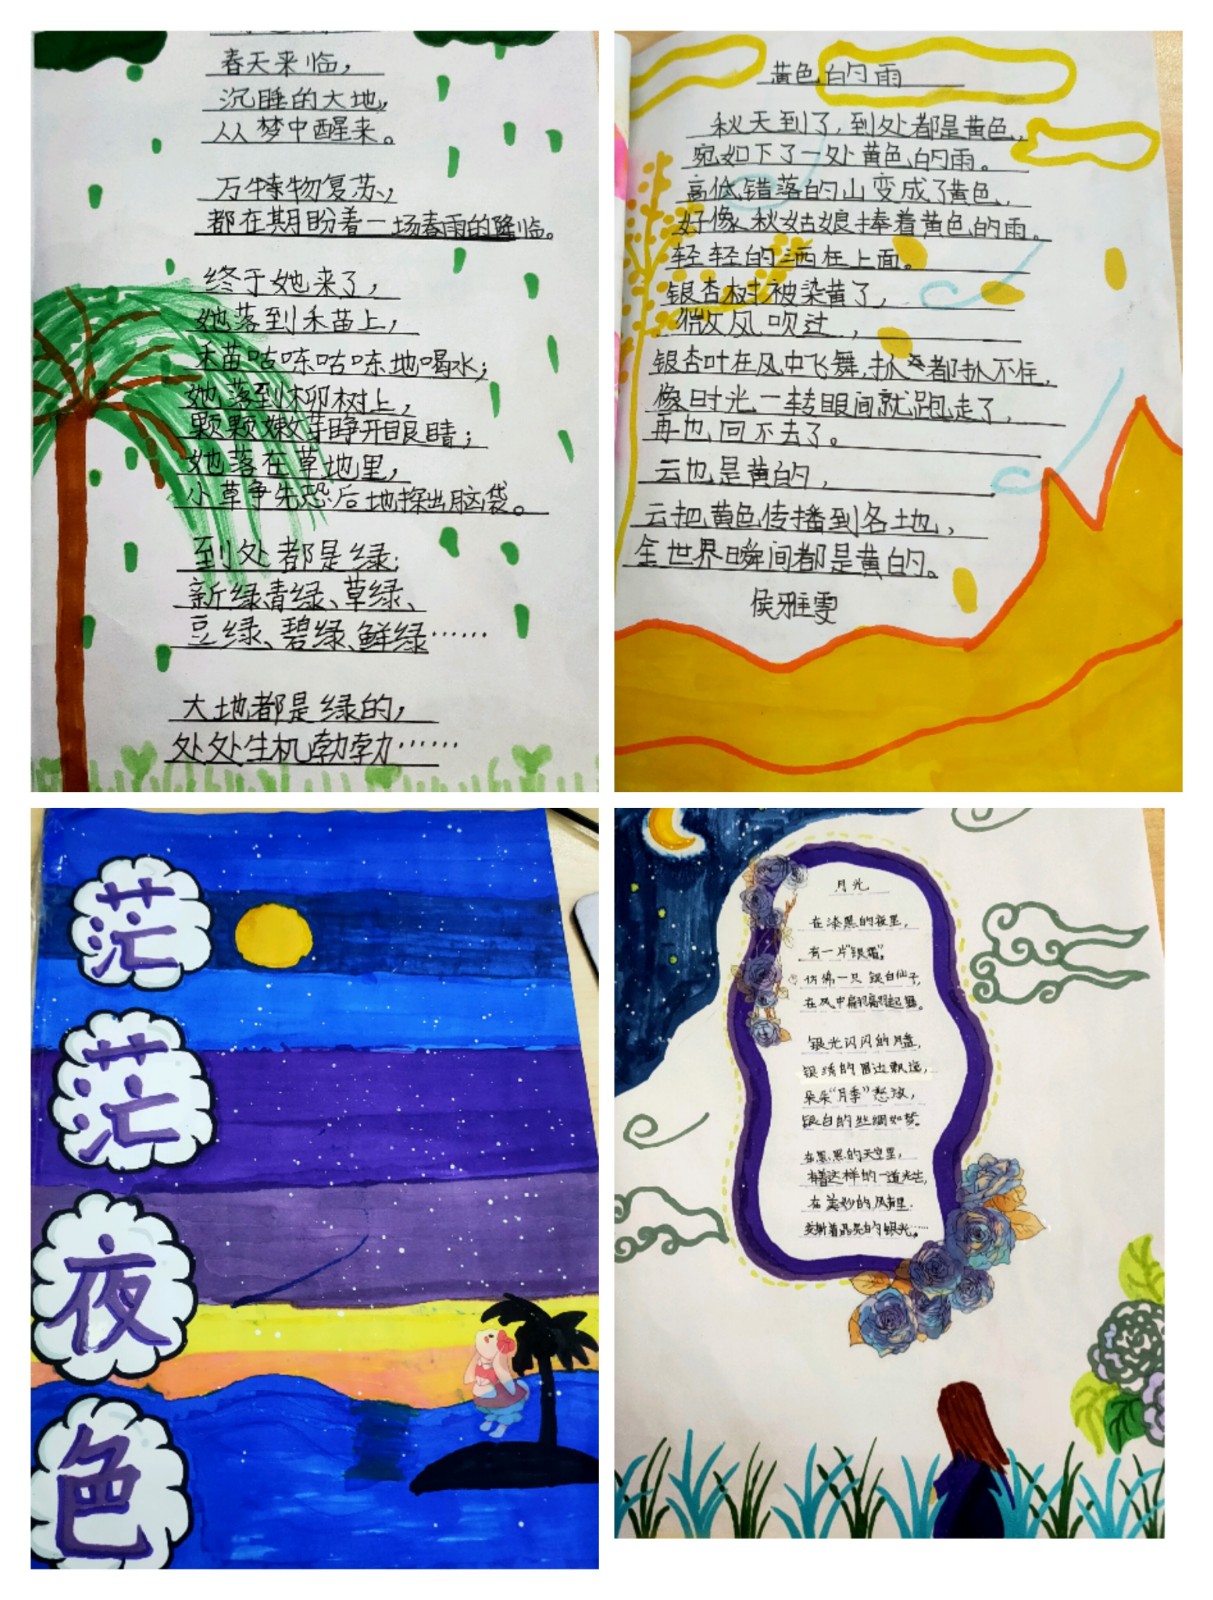 春天来临，
沉睡的大地，
从梦中醒来。
万物复苏，
都在期盼着一场春雨的降临。
终于她来了，
她落到禾苗上，
禾苗咕咚咕咚地喝水；
她落到柳树上，
颗颗嫩芽睁开眼睛；
她落在草地里，
小草争先恐后地探出脑袋。
到处都是绿：
新绿、青绿、草绿、
豆绿、碧绿、鲜绿……
大地都是绿的，
处处生机勃勃……
黄色的雨
秋天到了，到处都是黄色，
宛如下了一处黄色的雨。
高低错落的山变成了黄色，
好像秋姑娘捧着黄色的雨。
轻轻的洒在上面。
银杏树被染黄了，
微风吹过，
银杏叶在风中飞舞，扒都扒不住，
像时光一转眼间就跑走了，
再也回不去了。
云也是黄的，
云把黄色传播到各地，
全世界瞬间都是黄的。
侯雅雯
茫
茫
夜
色
月光
在漆黑的夜里，
有一片“银霜”。
仿佛一只银白仙子，
在风中翩翩起舞。
银光闪闪的月盘，
银绣的周边飘逸，
朵朵“月季”怒放，
银白的丝绸如梦。
在黑黑的天空里，
有着这样的一道光芒，
在美妙的风声里，
晶亮的银光……